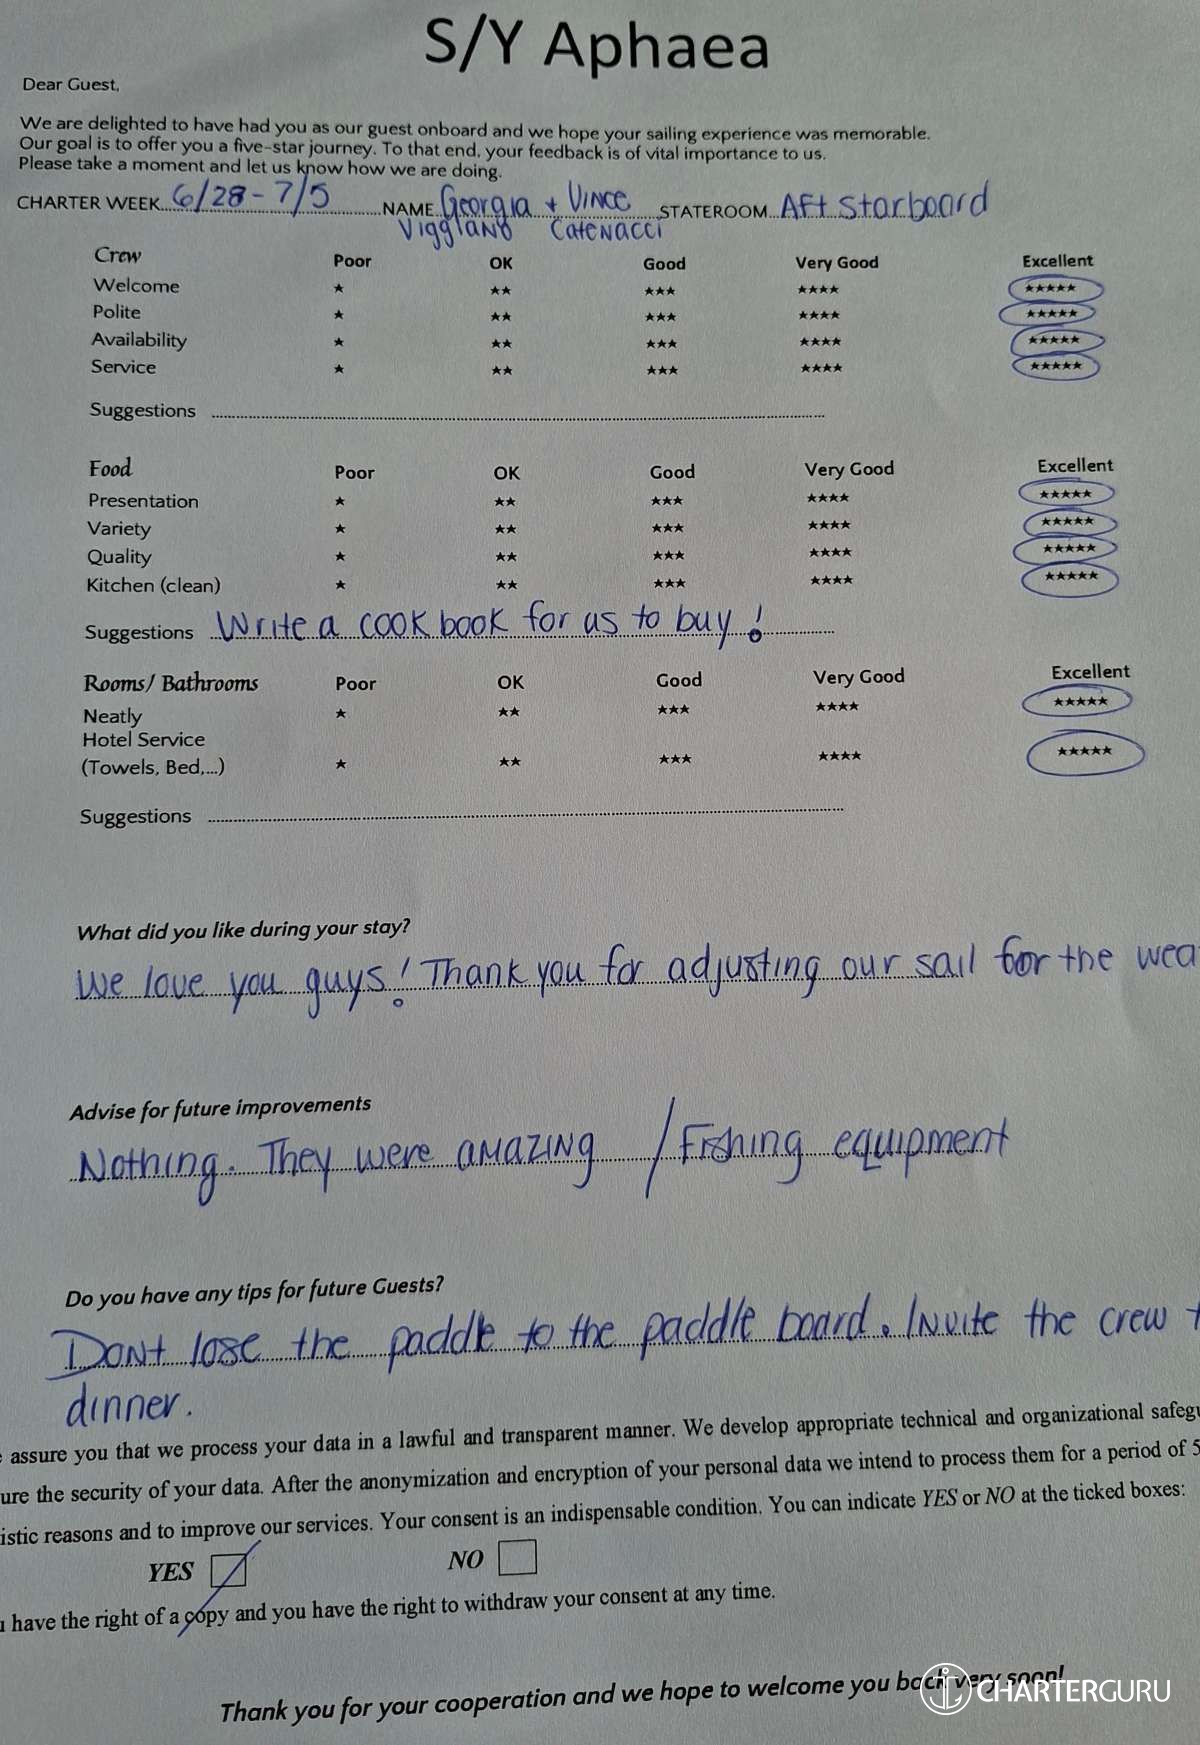 S/Y Aphaea
Dear Guest,
We are delighted to have had you as our guest onboard and we hope your sailing experience was memorable.
Our goal is to offer you a five-star journey. To that end, your feedback is of vital importance to us.
Please take a moment and let us know how we are doing.
CHARTER WEEK 6/28-7/5 NAME Georgia + Vince STATEROOM Aft starboard
Viggiano Catenacci
Crew Poor OK Good Very Good Excellent
Welcome ★ ★★ ★★★ ★★★★ ★★★★★
Polite ★ ★★ ★★★ ★★★★ ★★★★★
Availability ★ ★★ ★★★ ★★★★ ★★★★★
Service ★ ★★ ★★★ ★★★★ ★★★★★
Suggestions
Food Poor OK Good Very Good Excellent
Presentation ★ ★★ ★★★ ★★★★ ★★★★★
Variety ★ ★★ ★★★ ★★★★ ★★★★★
Quality ★ ★★ ★★★ ★★★★ ★★★★★
Kitchen (clean) ★ ★★ ★★★ ★★★★ ★★★★★
Suggestions Write a cook book for us to buy!
Rooms/ Bathrooms Poor OK Good Very Good Excellent
Neatly ★ ★★ ★★★ ★★★★ ★★★★★
Hotel Service
(Towels, Bed,...) ★ ★★ ★★★ ★★★★ ★★★★★
Suggestions
What did you like during your stay?
We love you guys! Thank you for adjusting our sail for the wea
Advise for future improvements
Nothing. They were amazing / Fishing equipment
Do you have any tips for future Guests?
Dont lose the paddle to the paddle board. Invite the crew t
dinner.
e assure you that we process your data in a lawful and transparent manner. We develop appropriate technical and organizational safegu
ure the security of your data. After the anonymization and encryption of your personal data we intend to process them for a period of 5
istic reasons and to improve our services. Your consent is an indispensable condition. You can indicate YES or NO at the ticked boxes:
YES NO
u have the right of a copy and you have the right to withdraw your consent at any time.
Thank you for your cooperation and we hope to welcome you back very soon!
CHARTERGURU